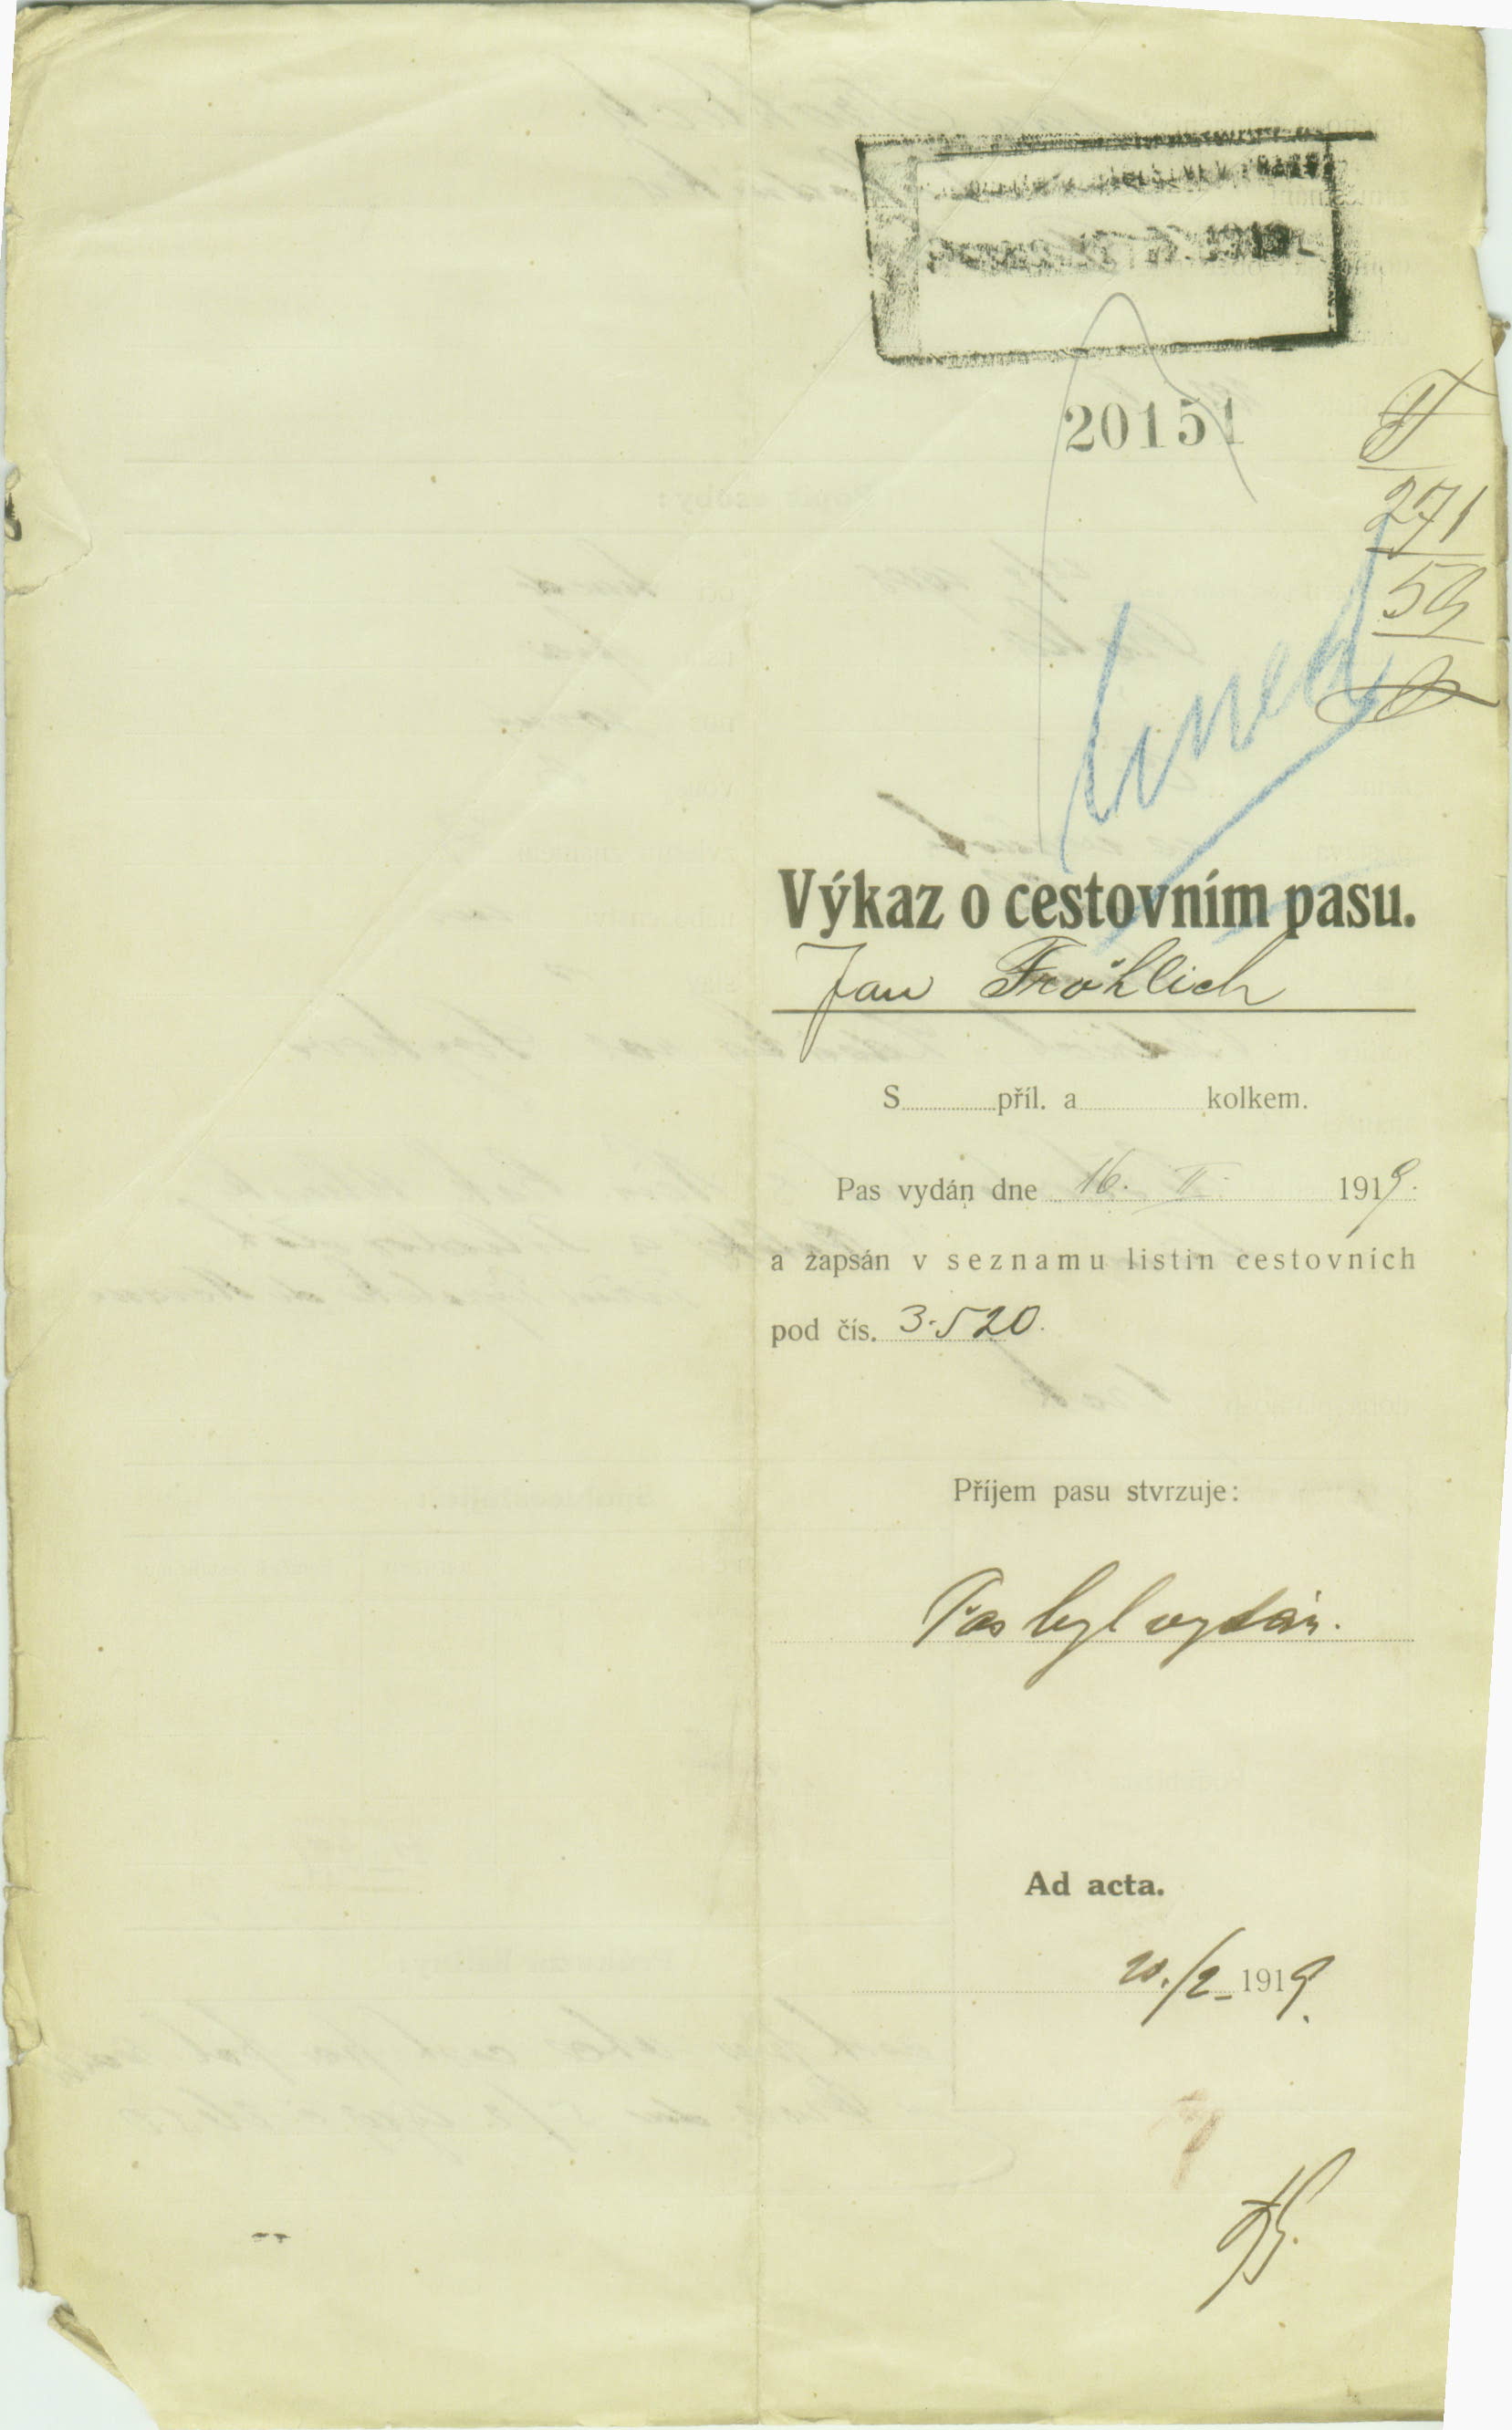 20151
II
271
59
ihned
Výkaz o cestovním pasu.
Jan Fröhlich
S příl. a kolkem.
Pas vydán dne 16. II. 1919.
a zapsán v seznamu listin cestovních
pod čís. 3.520.
Příjem pasu stvrzuje:
Pas byl vydán.
Ad acta.
20./2 1919.